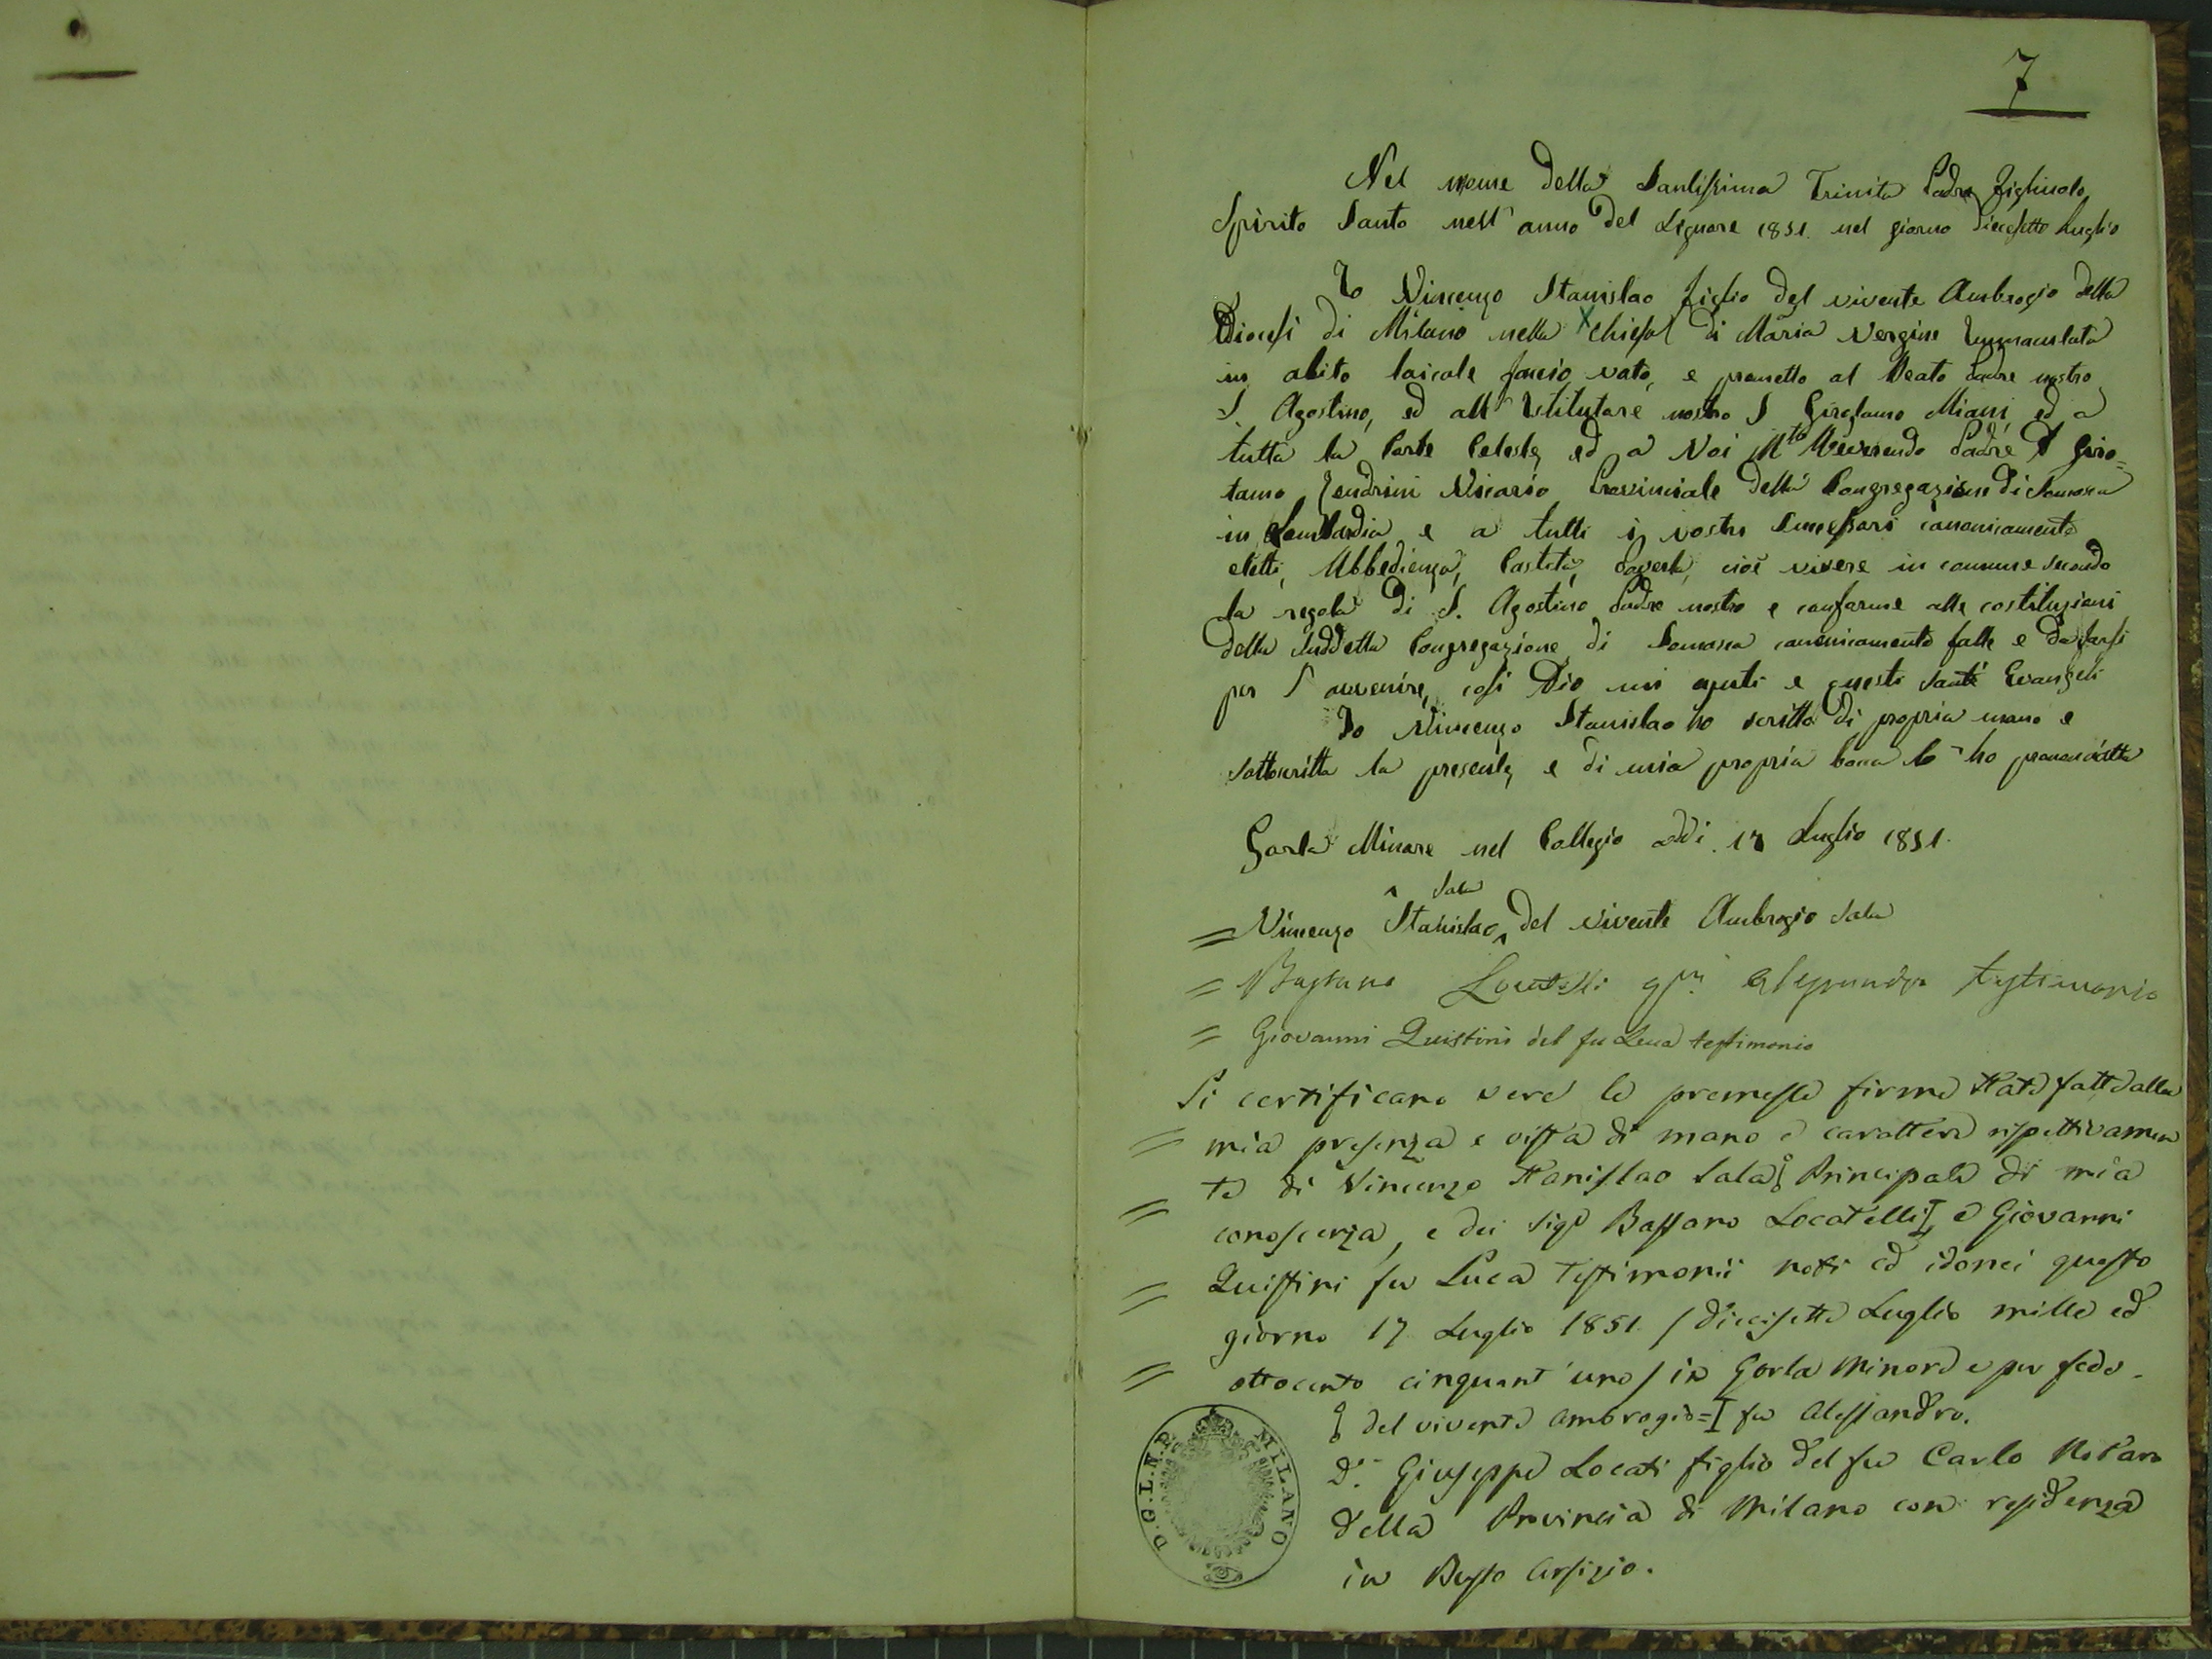 7
Nel nome della Santissima Trinità Padre Figliuolo,
Spirito Santo nell'anno del Signore 1851. nel giorno Diecisette Luglio
Io Vincenzo Stanislao figlio del vivente Ambrogio della
Diocesi di Milano nella X Chiesa di Maria Vergine Immaculata
in abito laicale faccio voto, e prometto al Beato Padre nostro
S. Agostino, ed all'Istitutore nostro S Girolamo Miani, ed a
tutta la Corte Celeste, ed a Voi Mto Reverendo Padre D Giro=
lamo Zendrini Vicario Provinciale della Congregazion di Somasca
in Lombardia e a tutti i vostri Successori canonicamente
eletti, Ubbedienza, Castità, Povertà, cioè vivere in comune secondo
la regola di S. Agostino Padre nostro e conforme alle costituzioni
della suddetta Congregazione di Somasca canonicamente fatte e da farsi
per l'avvenire, così Dio mi ajuti e questi Santi Evangeli
Io Vincenzo Stanislao ho scritto di propria mano e
sottoscritta la presente, e di mia propria bocca l'ho pronunciata
Gorla Minore nel Collegio addi. 17 Luglio 1851.
^ Sala
= Vincenzo Stanislao ^ del vivente Ambrogio Sala
= Bassano Locatelli qm Alessandro testimonio
= Giovanni Quistini del fu Luca testimonio
Si certificano vere le premesse firme state fatte alla
= mia presenza e vista di mano e carattere rispettivamen
te di Vincenzo Stanislao Sala Principale di mia
= conoscenza, e dei Sigi Bassano Locatelli I e Giovanni
Quistini fu Luca Testimonii noti ed idonei questo
= giorno 17 Luglio 1851. / diecisette Luglio mille ed
= ottocento cinquant'uno / in Gorla Minore e per fede.
del vivente Ambrogio = I fu Alessandro.
Dr. Giuseppe Locati figlio del fu Carlo Notaro
della Provincia di Milano con residenza
in Busto Arsizio.
D.G.L.N.P. MILANO